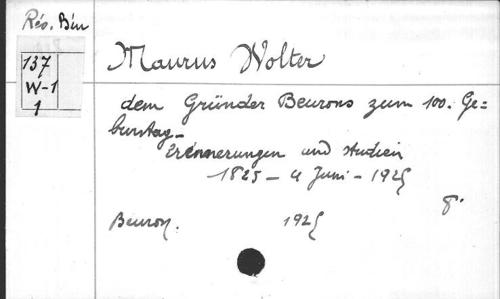 Rés. Bin
137
W-1
1
Maurus Wolter
dem Gründer Beurons zum 100. Ge-
burstag_
Erinnerungen und Studien
1825 – 4 Juni – 1925
8°
Beuron. 1925